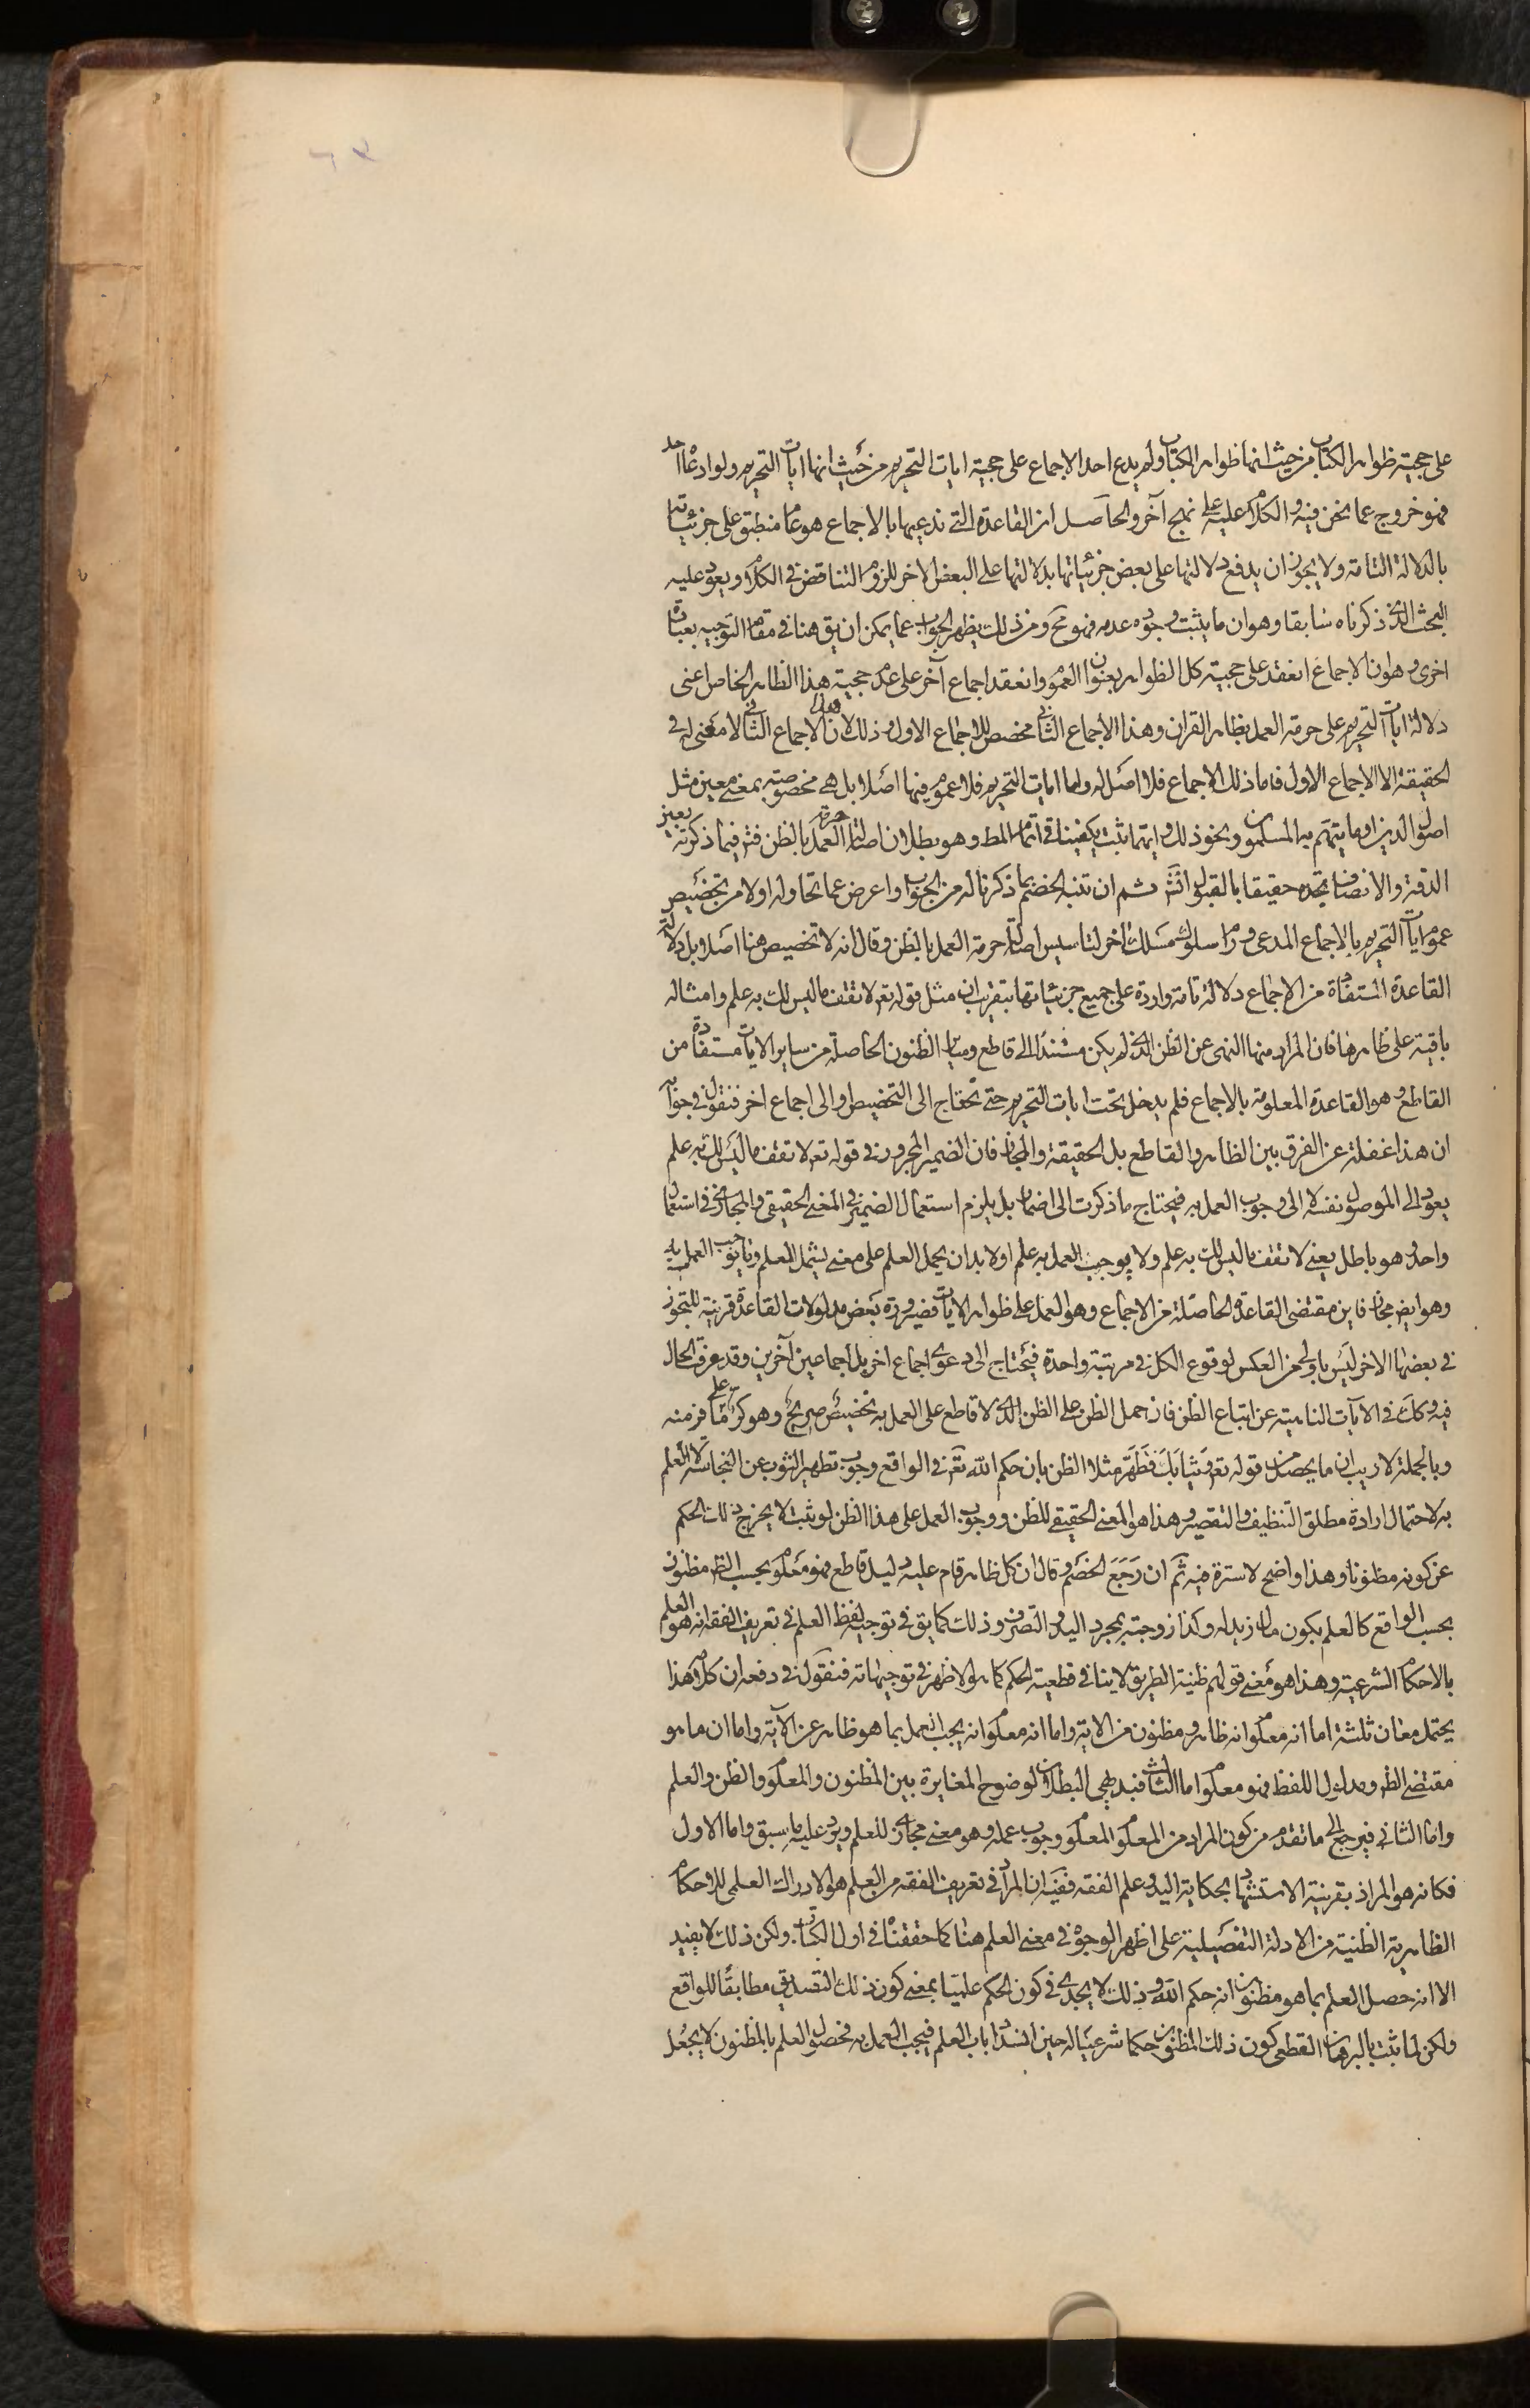 على حجية ظواهر الكتاب من حيث انها ظواهر الكتاب ولم يدع احد الاجماع على حجية ايات التحريم من حيث انها ايات التحريم ولو ادعاها احد
فهو خروج عما نحن فيه والكلام عليه على نهج آخر والحاصل ان القاعدة التي ندعيها بالاجماع هو عام منطبق على جزئياته
بالدلالة التامة ولا يجوز ان يدفع دلالتها على بعض جزئياتها بدلالتها على البعض الاخر للزوم التناقض في الكلام ويعود عليه
البحث الذي ذكرناه سابقا وهو ان ما يثبت وجوده عدمه فهو مح ومن ذلك يظهر الجواب عما يمكن ان يق هنا في مقام التوجيه بعبارة
اخرى وهو ان الاجماع انعقد على حجية كل الظواهر بعنوان العموم وانعقد اجماع آخر على عدم حجية هذا الظاهر الخاص اعنى
دلالة ايات التحريم على حرمة العمل بظاهر القران وهذا الاجماع الثاني مخصص للاجماع الاول وذلك لان الاجماع الثاني لا معنى له في
الحقيقة الا الاجماع الاول فاما ذلك الاجماع فلا اصل له واما ايات التحريم فلا عموم فيها اصلا بل هى مخصوصة بمعنى معين مثل
اصول الدين او ما يتهم به المسلمون ونحو ذلك وايتما ثبت يكفينا في اتمام المط وهو بطلان اصالة حرمة العمل بالظن فتدبر فيما ذكرته بعين
الدقة والانصاف تجده حقيقا بالقبول انش ثم ان تنبه الخصم بما ذكرنا له من الجواب واعرض عما تحاوله اولا من تخصيص
عموم ايات التحريم بالاجماع المدعى ورام سلوك مسلك اخر لتاسيس اصالة حرمة العمل بالظن وقال انه لا تخصيص هنا اصلا بل دلالة
القاعدة المستفادة من الاجماع دلالة تامة واردة على جميع جزئياتها بتقريب ان مثل قوله تعم لا تقف ما ليس لك به علم وامثاله
باقية على ظاهرها فان المراد منها النهى عن الظن الذي لم يكن مستندا الى قاطع وساير الظنون الحاصلة من ساير الايات مستفادة من
القاطع وهو القاعدة المعلومة بالاجماع فلم يدخل تحت ايات التحريم حتى نحتاج الى التخصيص او الى اجماع اخر فنقول في جوابه
ان هذا غفلة عن الفرق بين الظاهر والقاطع بل الحقيقة والمجاز فان الضمير المجرور في قوله تعم لا تقف ما ليس لك به علم
يعود الى الموصول نفسه لا الى وجوب العمل به فيحتاج ما ذكرت الى اضمار بل يلزم استعمال الضمير في المعنى الحقيقي والمجازي في استعمال
واحد وهو باطل يعنى لا تقف ما ليس لك به علم ولا يوجب العمل به علم او لا بد ان يحمل العلم على معنى يشمل العلم وما يوجب العمل به
وهو ايض مجاز فاين مقتضى القاعدة الحاصلة من الاجماع وهو العمل على ظواهر الايات فصيرورة بعض مدلولات القاعدة قرينة للتجوز
في بعضها الاخر ليس باولى من العكس لوقوع الكل في مرتبة واحدة فيحتاج الى دعوى اجماع اخر بل اجماعين آخرين وقد عرفت الحال
فيه وكك في الآيات الناهية عن اتباع الظن فان حمل الظن على الظن الذي لا قاطع على العمل به تخصيص صريح وهو كر على ما فر منه
وبالجملة لا ريب ان ما يحصل من قوله تعم وثيابك فطهر مثلا الظن بان حكم الله تعم في الواقع وجوب تطهير الثوب عن النجاسة لا العلم
به لاحتمال ارادة مطلق التنظيف والتقصير وهذا هو المعنى الحقيقي للظن ووجوب العمل على هذا الظن لو ثبت لا يخرج ذلك الحكم
عن كونه مظنونا وهذا واضح لا سترة فيه ثم ان رجع الخصم وقال ان كل ظاهر قام عليه دليل قاطع فهو معلوم بحسب الظ مظنون
بحسب الواقع كالعلم بكون مال زيد له وكذا زوجته بمجرد اليد والتصرف وذلك كما يق في توجيه لفظ العلم في تعريف الفقه انه هو العلم
بالاحكام الشرعية وهذا هو معنى قولهم ظنية الطريق لا ينافي قطعية الحكم كما هو الاظهر في توجيهاته فنقول في دفعه ان كلامك هذا
يحتمل معان ثلثة اما انه معلوم انه ظاهر ومظنون من الاية واما انه معلوم انه يجب العمل بما هو ظاهر عن الآية واما ان ما هو
مقتضى الظ ومدلول اللفظ فهو معلوم اما الثالث فبديهي البطلان لوضوح المغايرة بين المظنون والمعلوم والظن والعلم
واما الثاني فيرجع الى ما تقدم من كون المراد من المعلوم المعلوم وجوب عمله وهو معنى مجازي للعلم ويرد عليه ما سبق واما الاول
فكانه هو المراد بقرينة الاستشهاد بحكاية اليد وعلم الفقه ففيه ان المراد في تعريف الفقه من العلم هو الادراك العلمى للاحكام
الظاهرية الظنية من الادلة التفصيلية على اظهر الوجوه في معنى العلم هنا كما حققناه في اول الكتاب ولكن ذلك لا يفيد
الا انه حصل العلم بما هو مظنون انه حكم الله وذلك لا يجدى في كون الحكم علميا بمعنى كون ذلك التصديق مطابقا للواقع
ولكن لما ثبت بالبرهان القطعى كون ذلك المظنون حكما شرعيا له حين انسداد باب العلم فيجب العمل به فحصول العلم بالمظنون لا يجعل